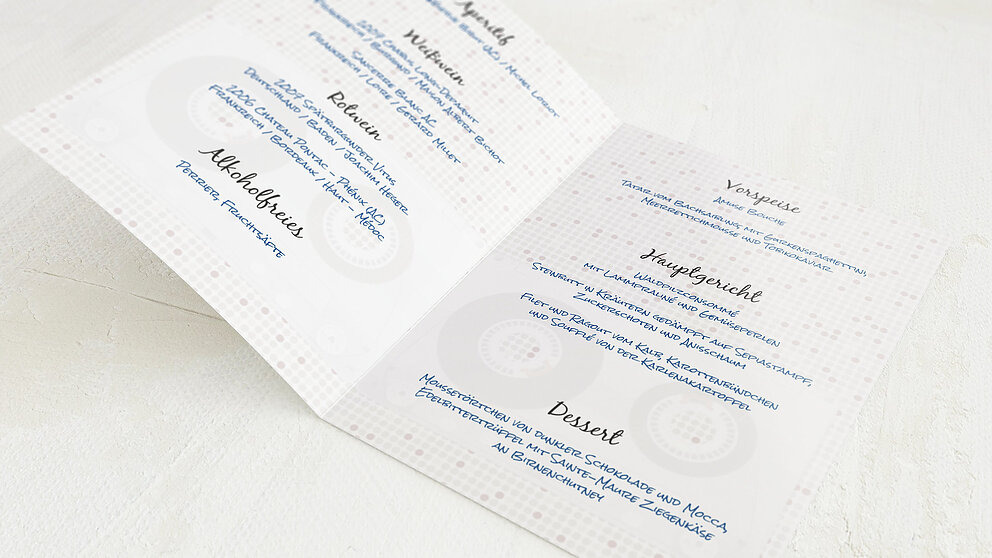 Aperitif
(AC) / Michel Loriot
Weißwein
2009 Chablis Long-Depaquit
Frankreich / Burgund / Maison Albert Bichot
Sancerre Blanc AC
Frankreich / Loire / Gerard Millet
Rotwein
2007 Spätburgunder Vitus
Deutschland / Baden / Joachim Heger
2006 Chateau Pontac – Phénix (AC)
Frankreich / Bordeaux / Haut – Médoc
Alkoholfreies
Perrier, Fruchtsäfte
Vorspeise
Amuse Bouche
Tatar vom Bachsaibling mit Gurkenspaghettini,
Meerrettichmousse und Tobikokaviar
Hauptgericht
Waldpilzconsommé
mit Lammpraliné und Gemüseperlen
Steinbutt in Kräutern gedämpft auf Sepiastampf,
Zuckerschoten und Anisschaum
Filet und Ragout vom Kalb, Karottenbündchen
und Soufflé von der Karlenakartoffel
Dessert
Moussetörtchen von dunkler Schokolade und Mocca,
Edelbittertrüffel mit Sainte-Maure Ziegenkäse
an Birnenchutney